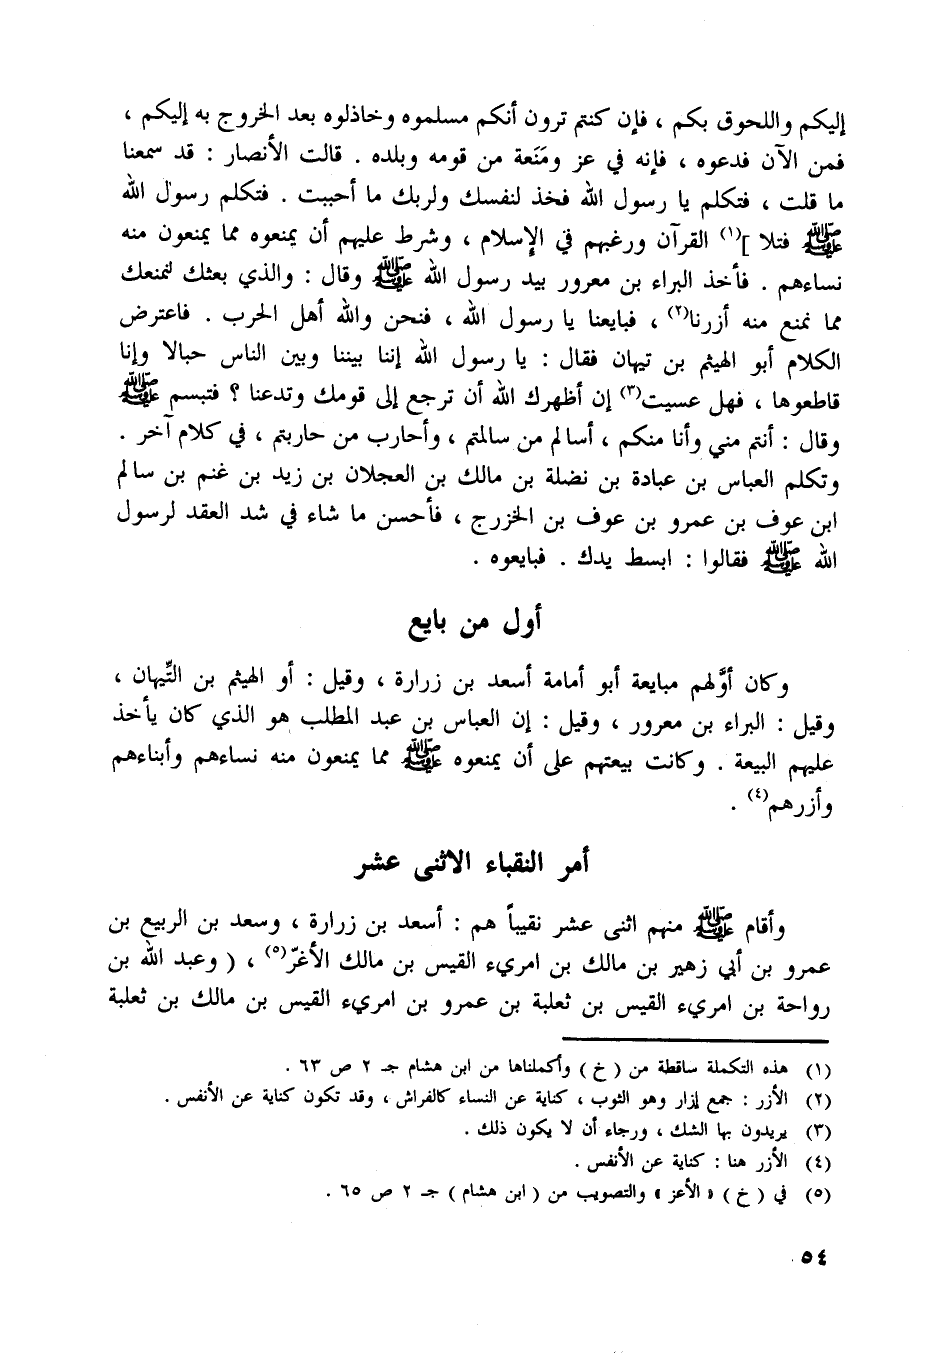 إليكم واللحوق بكم ، فإن كنتم ترون أنكم مسلموه وخاذلوه بعد الخروج به إليكم ،
فمن الآن فدعوه ، فإنه في عز ومَنَعة من قومه وبلده . قالت الأنصار : قد سمعنا
ما قلت ، فتكلم يا رسول الله فخذ لنفسك ولربك ما أحببت . فتكلم رسول الله
ﷺ فتلا ](١) القرآن ورغبهم في الإسلام ، وشرط عليهم أن يمنعوه مما يمنعون منه
نساءهم . فأخذ البراء بن معرور بيد رسول الله ﷺ وقال : والذي بعثك لنمنعك
مما نمنع منه أزرنا(٢) ، فبايعنا يا رسول الله ، فنحن والله أهل الحرب . فاعترض
الكلام أبو الهيثم بن تيهان فقال : يا رسول الله إننا بيننا وبين الناس حبالا وإنا
قاطعوها ، فهل عسيت(٣) إن أظهرك الله أن ترجع إلى قومك وتدعنا ؟ فتبسم ﷺ
وقال : أنتم مني وأنا منكم ، أسالم من سالمتم ، وأحارب من حاربتم ، في كلام آخر .
وتكلم العباس بن عبادة بن نضلة بن مالك بن العجلان بن زيد بن غنم بن سالم
ابن عوف بن عمرو بن عوف بن الخزرج ، فأحسن ما شاء في شد العقد لرسول
الله ﷺ فقالوا : ابسط يدك . فبايعوه .
أول من بايع
وكان أوَّلهم مبايعة أبو أمامة أسعد بن زرارة ، وقيل : أو الهيثم بن التِّيهان ،
وقيل : البراء بن معرور ، وقيل : إن العباس بن عبد المطلب هو الذي كان يأخذ
عليهم البيعة . وكانت بيعتهم على أن يمنعوه ﷺ مما يمنعون منه نساءهم وأبناءهم
وأزرهم(٤) .
أمر النقباء الاثنى عشر
وأقام ﷺ منهم اثنى عشر نقيباً هم : أسعد بن زرارة ، وسعد بن الربيع بن
عمرو بن أبي زهير بن مالك بن امريء القيس بن مالك الأغرّ(٥) ، ( وعبد الله بن
رواحة بن امريء القيس بن ثعلبة بن عمرو بن امريء القيس بن مالك بن ثعلبة
(١) هذه التكملة ساقطة من ( خ ) وأكملناها من ابن هشام جـ ٢ ص ٦٣ .
(٢) الأزر : جمع إزار وهو الثوب ، كناية عن النساء كالفراش ، وقد تكون كناية عن الأنفس .
(٣) يريدون بها الشك ، ورجاء أن لا يكون ذلك .
(٤) الأزر هنا : كناية عن الأنفس .
(٥) في ( خ ) « الأعز » والتصويب من ( ابن هشام ) جـ ٢ ص ٦٥ .
٥٤